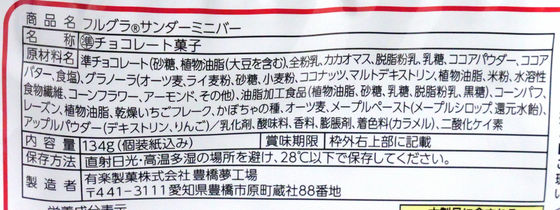 商品名 フルグラ®サンダーミニバー
名称 準チョコレート菓子
原材料名 準チョコレート(砂糖、植物油脂(大豆を含む)、全粉乳、カカオマス、脱脂粉乳、乳糖、ココアパウダー、ココア
バター、食塩)、グラノーラ(オーツ麦、ライ麦粉、砂糖、小麦粉、ココナッツ、マルトデキストリン、植物油脂、米粉、水溶性
食物繊維、コーンフラワー、アーモンド、その他)、油脂加工食品(植物油脂、砂糖、乳糖、脱脂粉乳、黒糖)、コーンパフ、
レーズン、植物油脂、乾燥いちごフレーク、かぼちゃの種、オーツ麦、メープルペースト(メープルシロップ、還元水飴)、
アップルパウダー(デキストリン、りんご)/乳化剤、酸味料、香料、膨脹剤、着色料(カラメル)、二酸化ケイ素
内容量 134g(個装紙込み) 賞味期限 枠外右上部に記載
保存方法 直射日光・高温多湿の場所を避け、28℃以下で保存してください。
製造者 有楽製菓株式会社 豊橋夢工場
〒441-3111愛知県豊橋市原町蔵社88番地